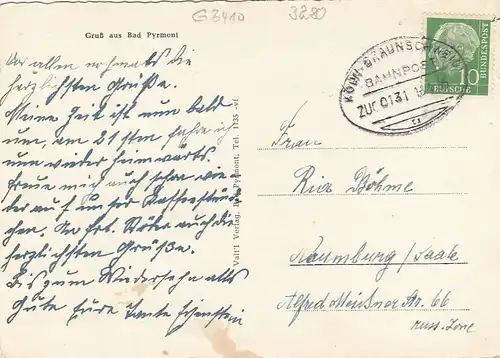 G3410
3280
Gruß aus Bad Pyrmont
Vor allem nochmals die
herzlichsten Grüße.
Meine Zeit ist nun bald
um, am 21sten fahre ich
nun wieder heimwärts.
Freue mich auch schon wie
der auf unser Kaffeestünd
chen. An Frl. Stöhr auch die
herzlichsten Grüße.
Bis zum Wiedersehn alles
Gute Eure Tante Eifenstein
Val't Verlag, Bad Pyrmont, Tel. 1235
KÖLN-BRAUNSCHWEIG
BAHNPOST
ZUG 0131
DEUTSCHE BUNDESPOST
10
Frau
Böhme
Naumburg/Saale
Alfred Meißner Str. 66
russ. Zone